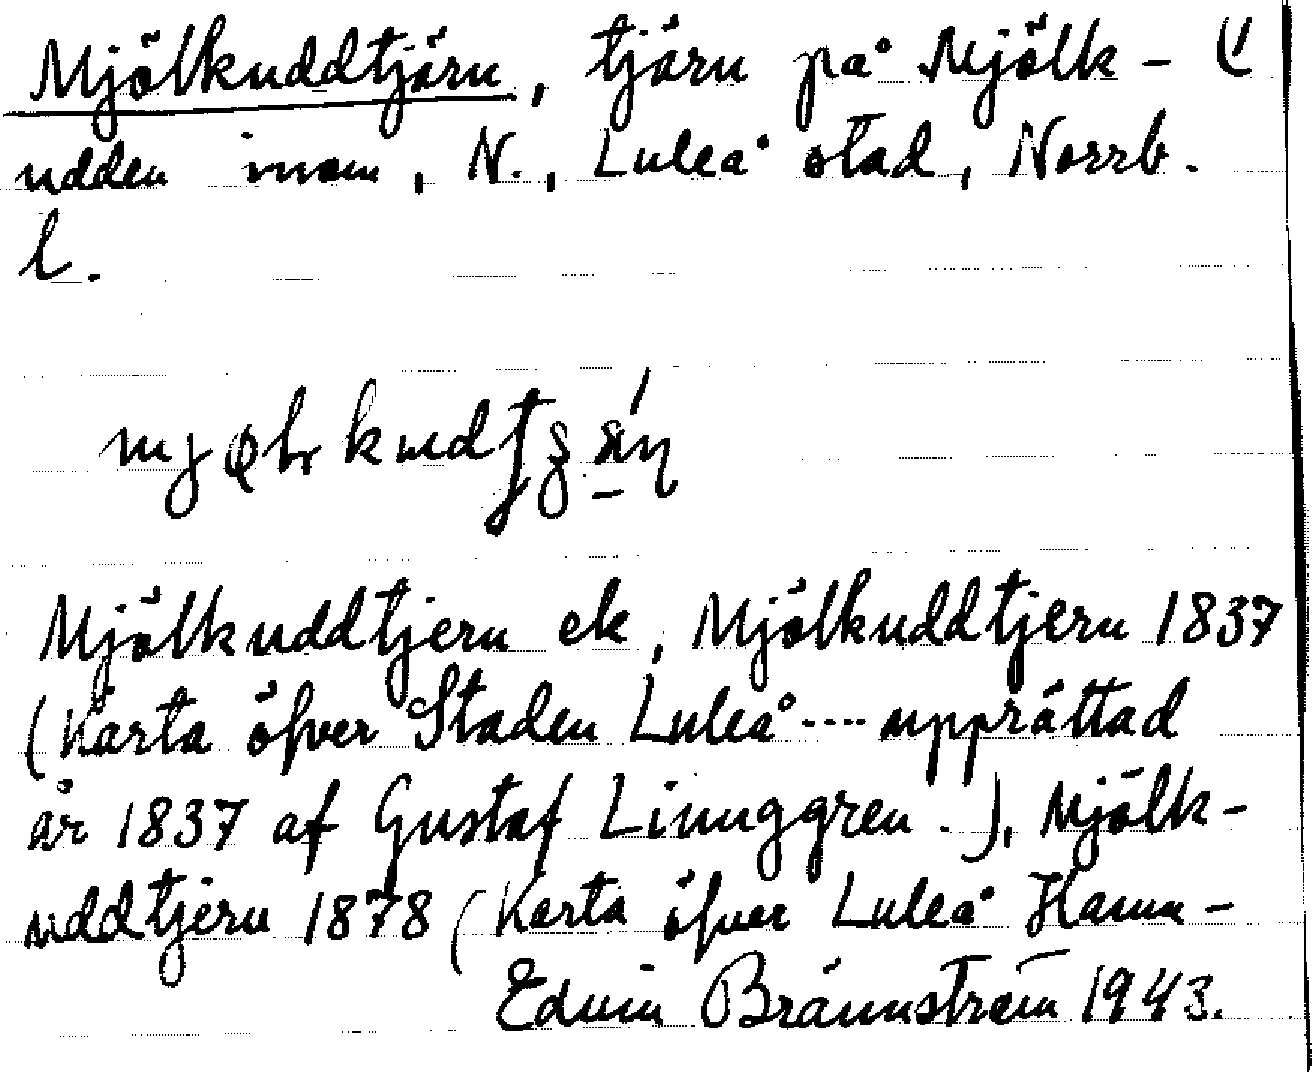 Mjölkuddtjärn, tjärn på Mjölk-
udden inom, N., Luleå stad, Norrb.
l.
Mjölkuddtjern ek, Mjölkuddtjern 1837
(Karta öfver Staden Luleå ---- upprättad
år 1837 af Gustaf Linnggren.), Mjölk-
uddtjern 1878 (Karta öfver Luleå Hamn-
Edvin Brännström 1943.